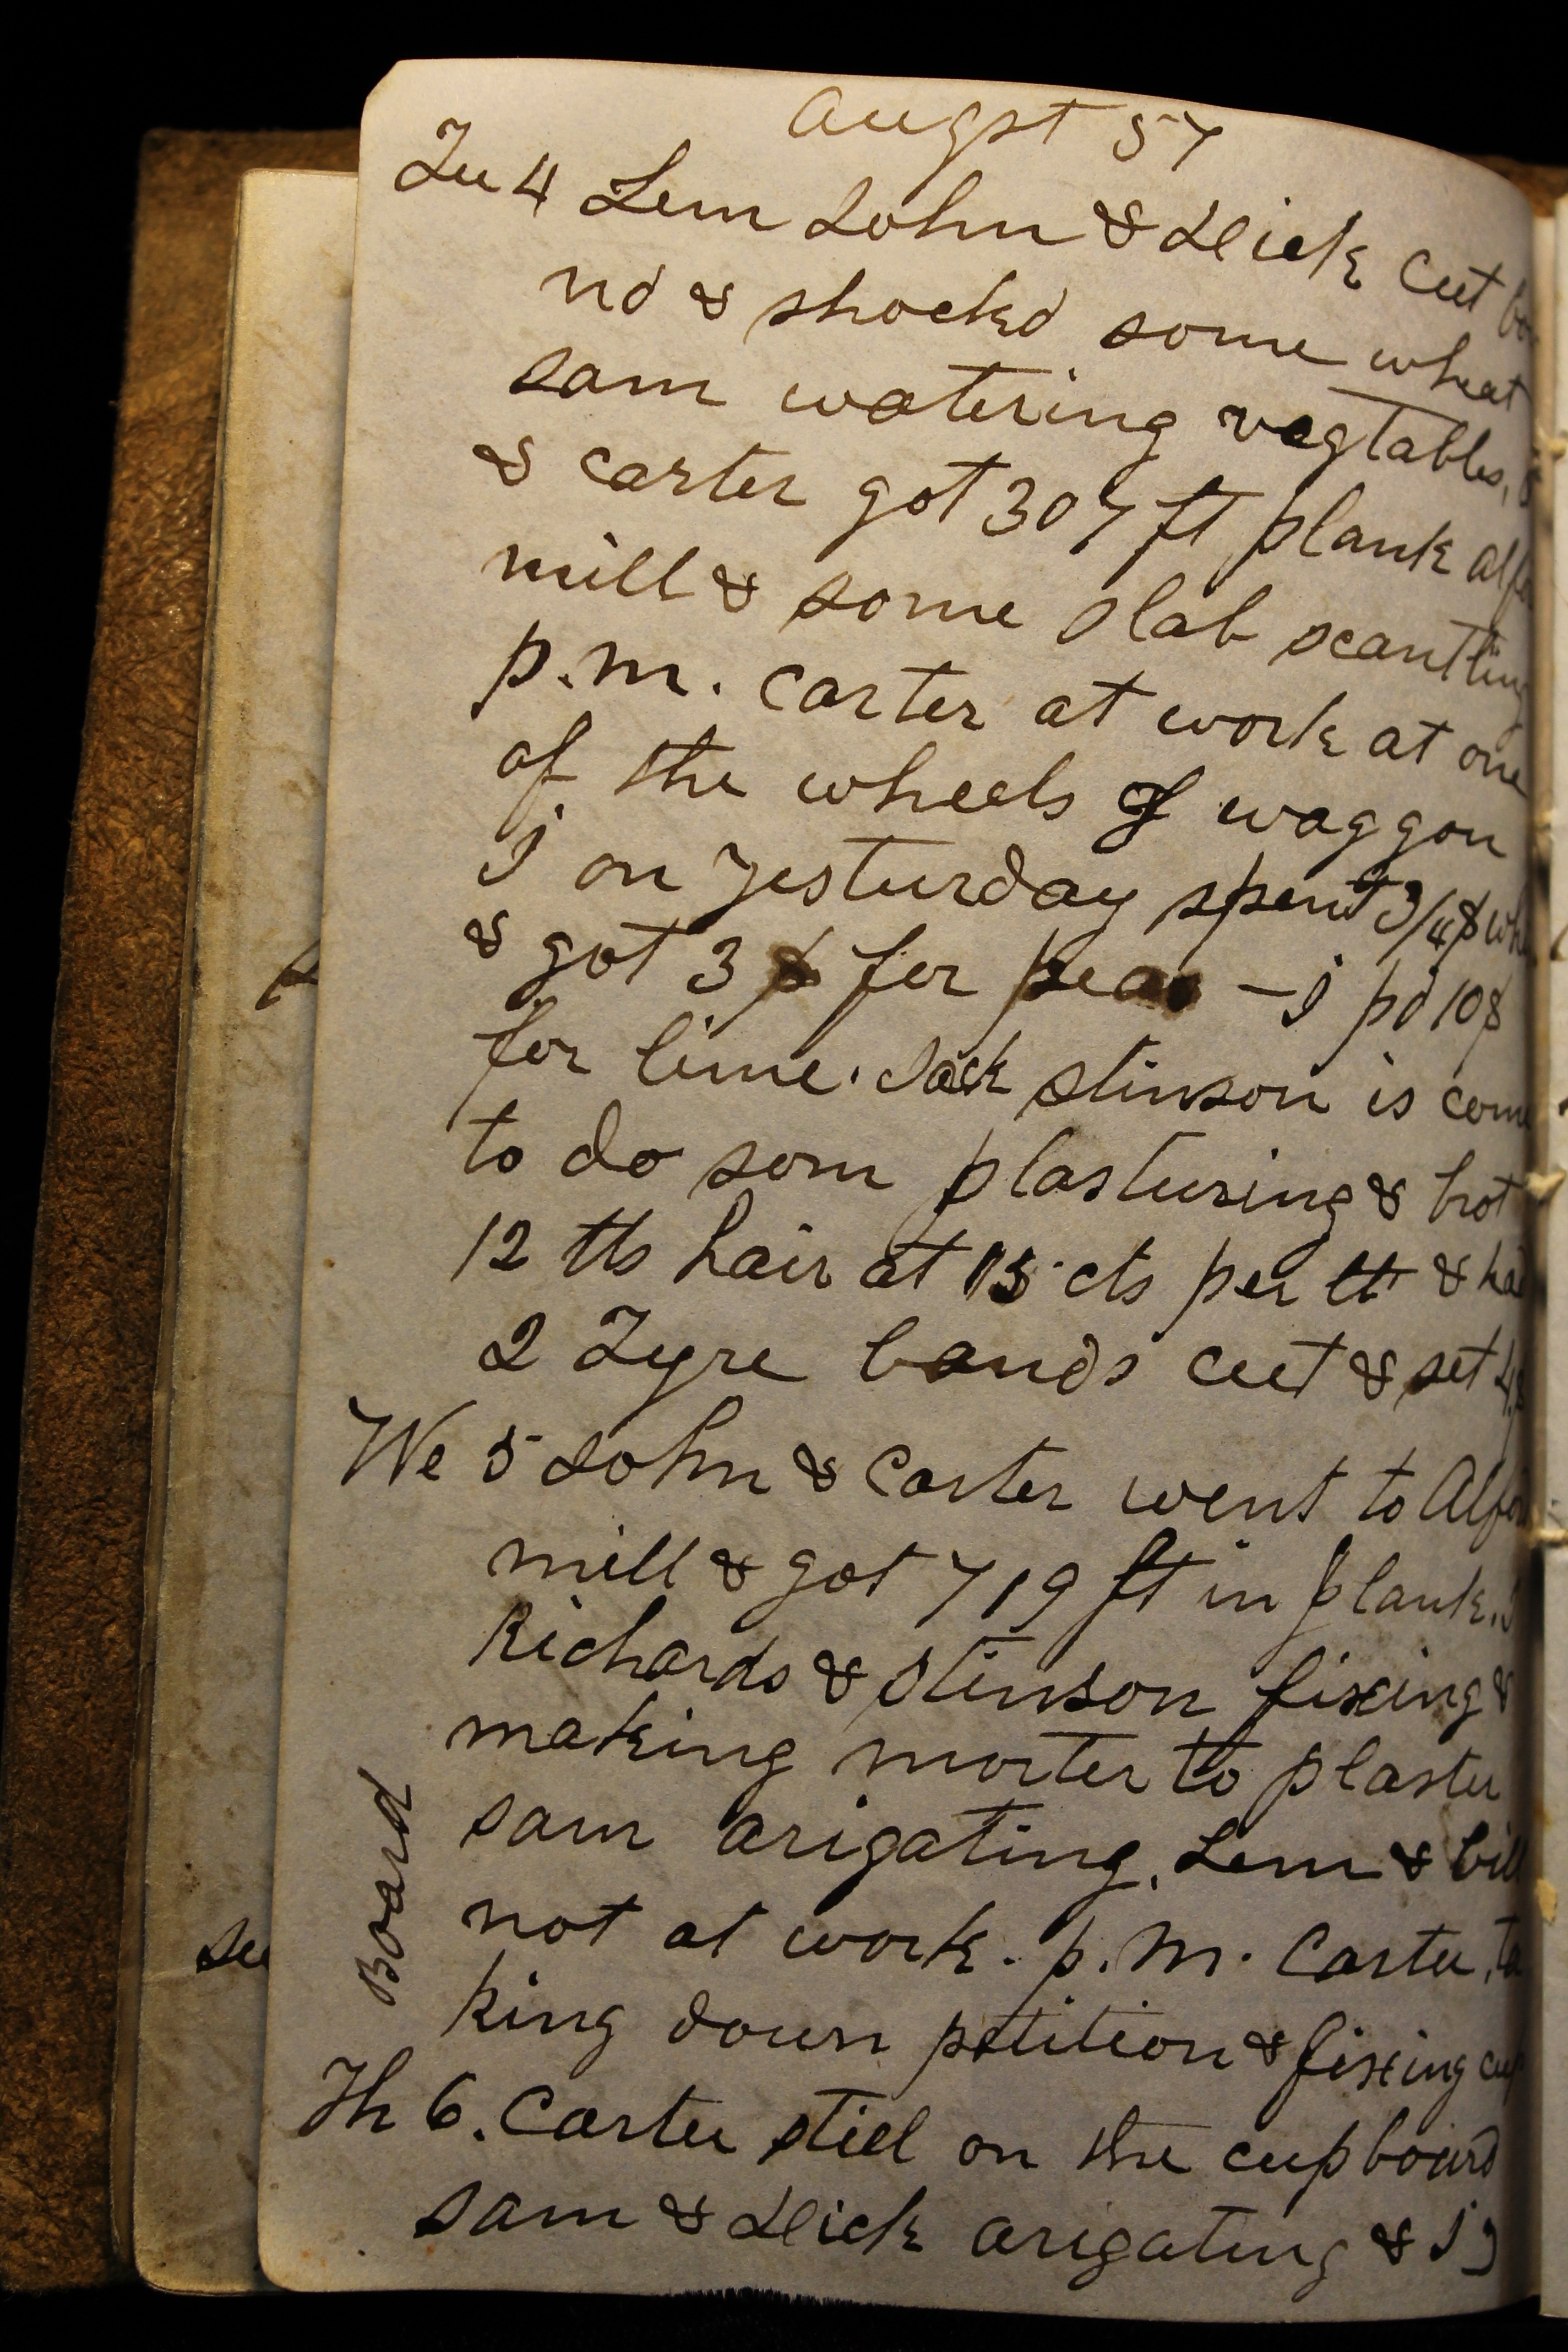 Augst 57
Tu 4 Lem John & Dick cut bo
nd & shockd some wheat
sam watering vegtables,
& carter got 307 ft plank alfo
mill & some slab scantling
p.m. carter at work at one
of the wheels of waggon
I on yesturday spent 3/4$
& got 3 $ for peas - I pd 10$
for lime. Jack stinson is come
to do som plasturing & brot
12 lbs hair at 15 cts per lb & had
2 Tyre bands cut & set
We 5 John & Carter went to Alfo
mill & got 719 ft in plank.
Richards & Stinson fixing &
making morter to plaster
sam arigating. Lem & bill
not at work. p.m. Carter, ta
king down petition & fixing cup
Board
Th 6. Carter still on the cupboard
sam & Dick arigating & I